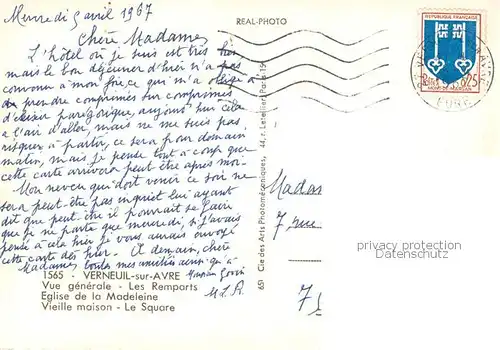 Mercredi 5 avril 1967
REAL-PHOTO
Chère Madame,
L'hôtel où je suis est très
mais le bon déjeuner d'hier n'a pas
convenu à mon foie, ce qui m'a obligé à
prendre comprimés sur comprimés
d'élixir parégorique, aujourd'hui cela
a l'air d'aller, mais ne me suis pas
risquée à partir, ce sera pour demain
matin, mais je pense tout à coup que
cette carte arrivera peut être après moi.
Mon neveu qui doit venir ce soir ne
sera peut-être pas inquiet lui ayant
dit que peut être il pourrait se faire
que je ne parte que mercredi, si j'avais
pensé à cela hier je vous aurais envoyé
cette carte dès hier. À demain, chère
Madame, toutes mes amitiés ainsi qu'à
M.L.R.
1565 - VERNEUIL-sur-AVRE
Vue générale - Les Remparts
Eglise de la Madeleine
Vieille maison - Le Square
651 Cie des Arts Photomécaniques, 44, r. Letellier, Paris 15e
REPUBLIQUE FRANÇAISE
0,25F
MONT-DE-MARSAN
EURE
Madam
7, rue
7
privacy protection
Datenschutz